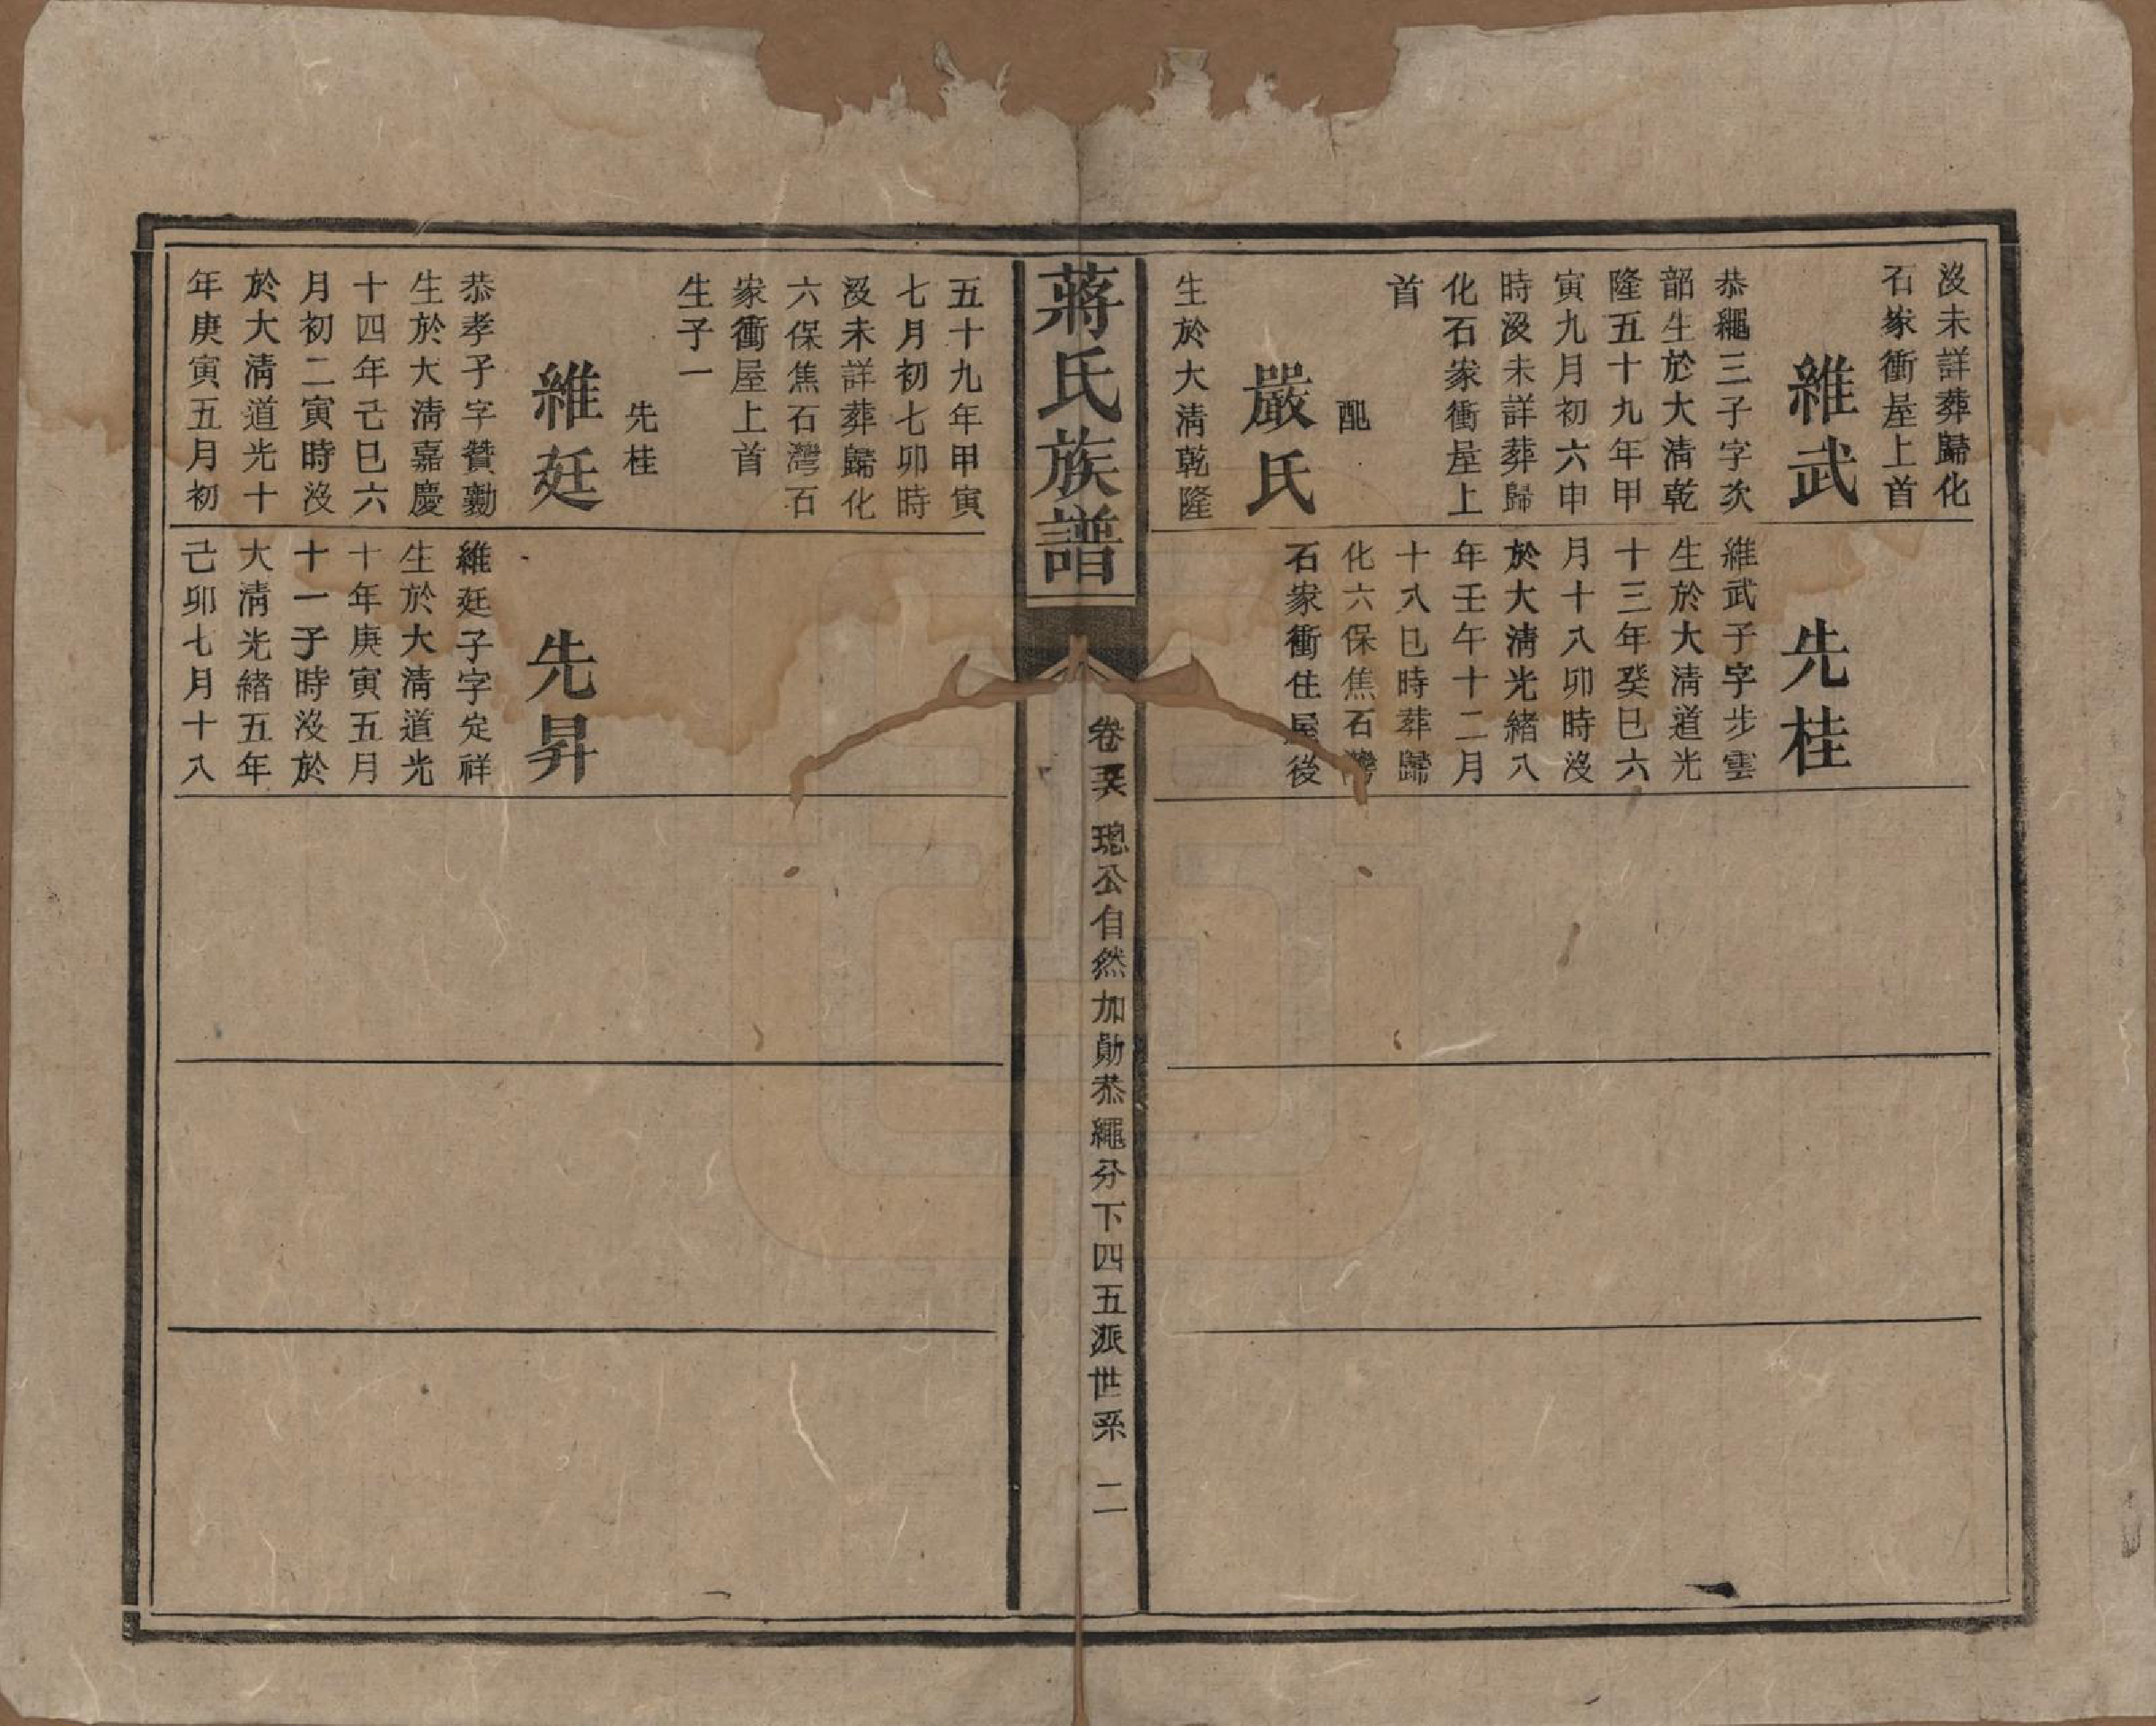 沒未詳葬歸化
石家衝屋上首
維武
恭繩三子字次
韶生於大清乾
隆五十九年甲
寅九月初六申
時沒未詳葬歸
化石家衝屋上
首
配
嚴氏
生於大清乾隆
先桂
維武子字步雲
生於大清道光
十三年癸巳六
月十八卯時沒
於大清光緒八
年壬午十二月
十八巳時葬歸
化六保焦石灣
石家衝住屋後
蔣氏族譜
卷 璁公自然加勛恭繩分下四五派世系 二
五十九年甲寅
七月初七卯時
沒未詳葬歸化
六保焦石灣石
家衝屋上首
生子一
先桂
維廷
恭孝子字贊勷
生於大清嘉慶
十四年己巳六
月初二寅時沒
於大清道光十
年庚寅五月初
先昇
維廷子字定祥
生於大清道光
十年庚寅五月
十一子時沒於
大清光緒五年
己卯七月十八